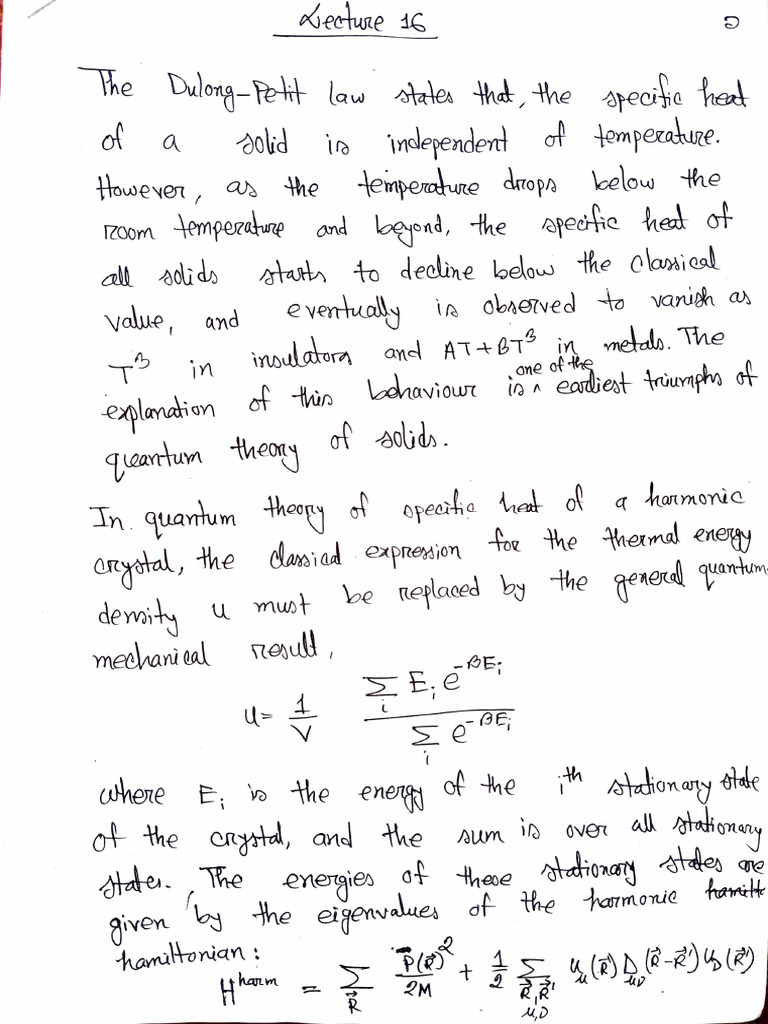 Lecture 16
The Dulong-Petit law states that, the specific heat
of a solid is independent of temperature.
However, as the temperature drops below the
room temperature and beyond, the specific heat of
all solids starts to decline below the classical
value, and eventually is observed to vanish as
T³ in insulators and AT+BT³ in metals. The
explanation of this behaviour is one of the earliest triumphs of
quantum theory of solids.
In quantum theory of specific heat of a harmonic
crystal, the classical expression for the thermal energy
density u must be replaced by the general quantum
mechanical result,
u = 1/V Σ_i E_i e^{-βE_i} / Σ_i e^{-βE_i}
where E_i is the energy of the i^th stationary state
of the crystal, and the sum is over all stationary
states. The energies of these stationary states are
given by the eigenvalues of the harmonic
hamiltonian:
H^harm = Σ_R⃗ P⃗(R⃗)²/2M + 1/2 Σ_{R⃗,R⃗', μ,ν} u_μ(R⃗) D_μν(R⃗-R⃗') u_ν(R⃗')